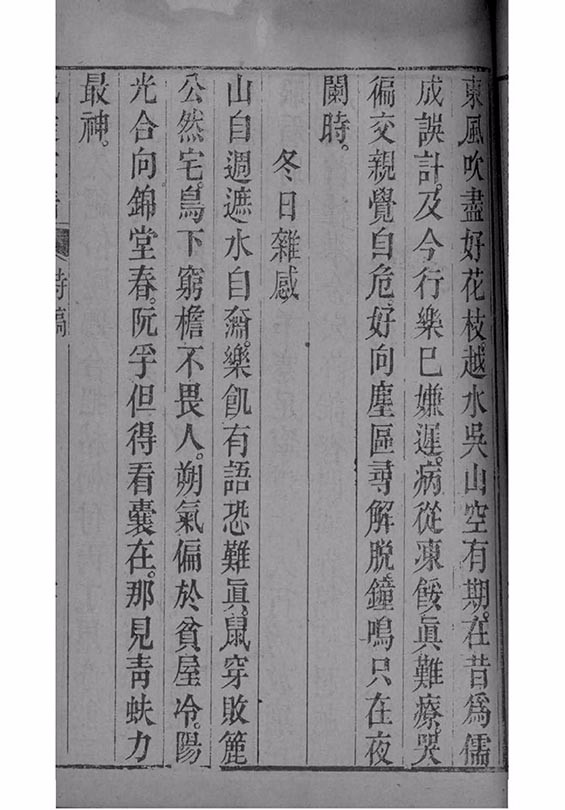 東風吹盡好花枝。越水吳山空有期。在昔爲儒
成誤計。及今行樂已嫌遲。病從凍餒眞難療。哭
徧交親覺自危。好向塵區尋解脫。鐘鳴只在夜
闌時。
冬日雜感
山自週遮水自齋。樂飢有語恐難眞。鼠穿敗簏
公然宅。鳥下窮檐不畏人。朔氣偏於貧屋冷。陽
光合向錦堂春。阮孚但得看囊在。那見青蚨力
最神。
詩稿